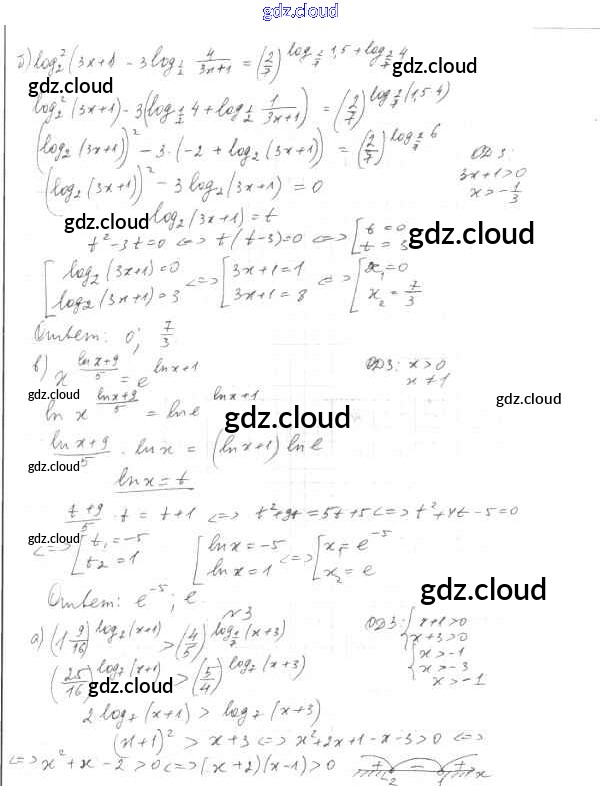 gdz.cloud
б) log₂²(3x+1) - 3log_{1/2} 4/(3x+1) = (2/7)^{log_{2/7} 1,5 + log_{2/7} 4}
gdz.cloud
gdz.cloud
log₂²(3x+1) - 3(log_{1/2} 4 + log_{1/2} 1/(3x+1)) = (2/7)^{log_{2/7}(1,5·4)}
(log₂(3x+1))² - 3·(-2 + log₂(3x+1)) = (2/7)^{log_{2/7} 6}
ОДЗ:
3x+1>0
x>-1/3
(log₂(3x+1))² - 3log₂(3x+1) = 0
gdz.cloud
log₂(3x+1) = t
gdz.cloud
t² - 3t = 0 <=> t(t-3) = 0 <=> [t = 0
t = 3
[log₂(3x+1) = 0
log₂(3x+1) = 3
<=> [3x+1 = 1
3x+1 = 8
<=> [x₁ = 0
x₂ = 7/3
Ответ: 0; 7/3
в) x^{(lnx+9)/5} = e^{lnx+1}
ОДЗ: x>0
x≠1
gdz.cloud
gdz.cloud
ln x^{(lnx+9)/5} = ln e^{lnx+1}
gdz.cloud
(lnx+9)/5 · lnx = (lnx+1) ln e
gdz.cloud
lnx = t
(t+9)/5 · t = t+1 <=> t²+9t = 5t+5 <=> t²+4t-5=0
gdz.cloud
<=> [t₁ = -5
t₂ = 1
[lnx = -5
lnx = 1
<=> [x₁ = e⁻⁵
x₂ = e
Ответ: e⁻⁵; e
gdz.cloud
N3
а) (1 9/16)^{log₇(x+1)} > (4/5)^{log_{1/7}(x+3)}
ОДЗ: {x+1>0
x+3>0
{x>-1
x>-3
x>-1
gdz.cloud
(25/16)^{log₇(x+1)} > (5/4)^{log₇(x+3)}
gdz.cloud
2log₇(x+1) > log₇(x+3)
(x+1)² > x+3 <=> x²+2x+1-x-3>0 <=>
<=> x²+x-2>0 <=> (x+2)(x-1)>0
+ - +
-2 1 x